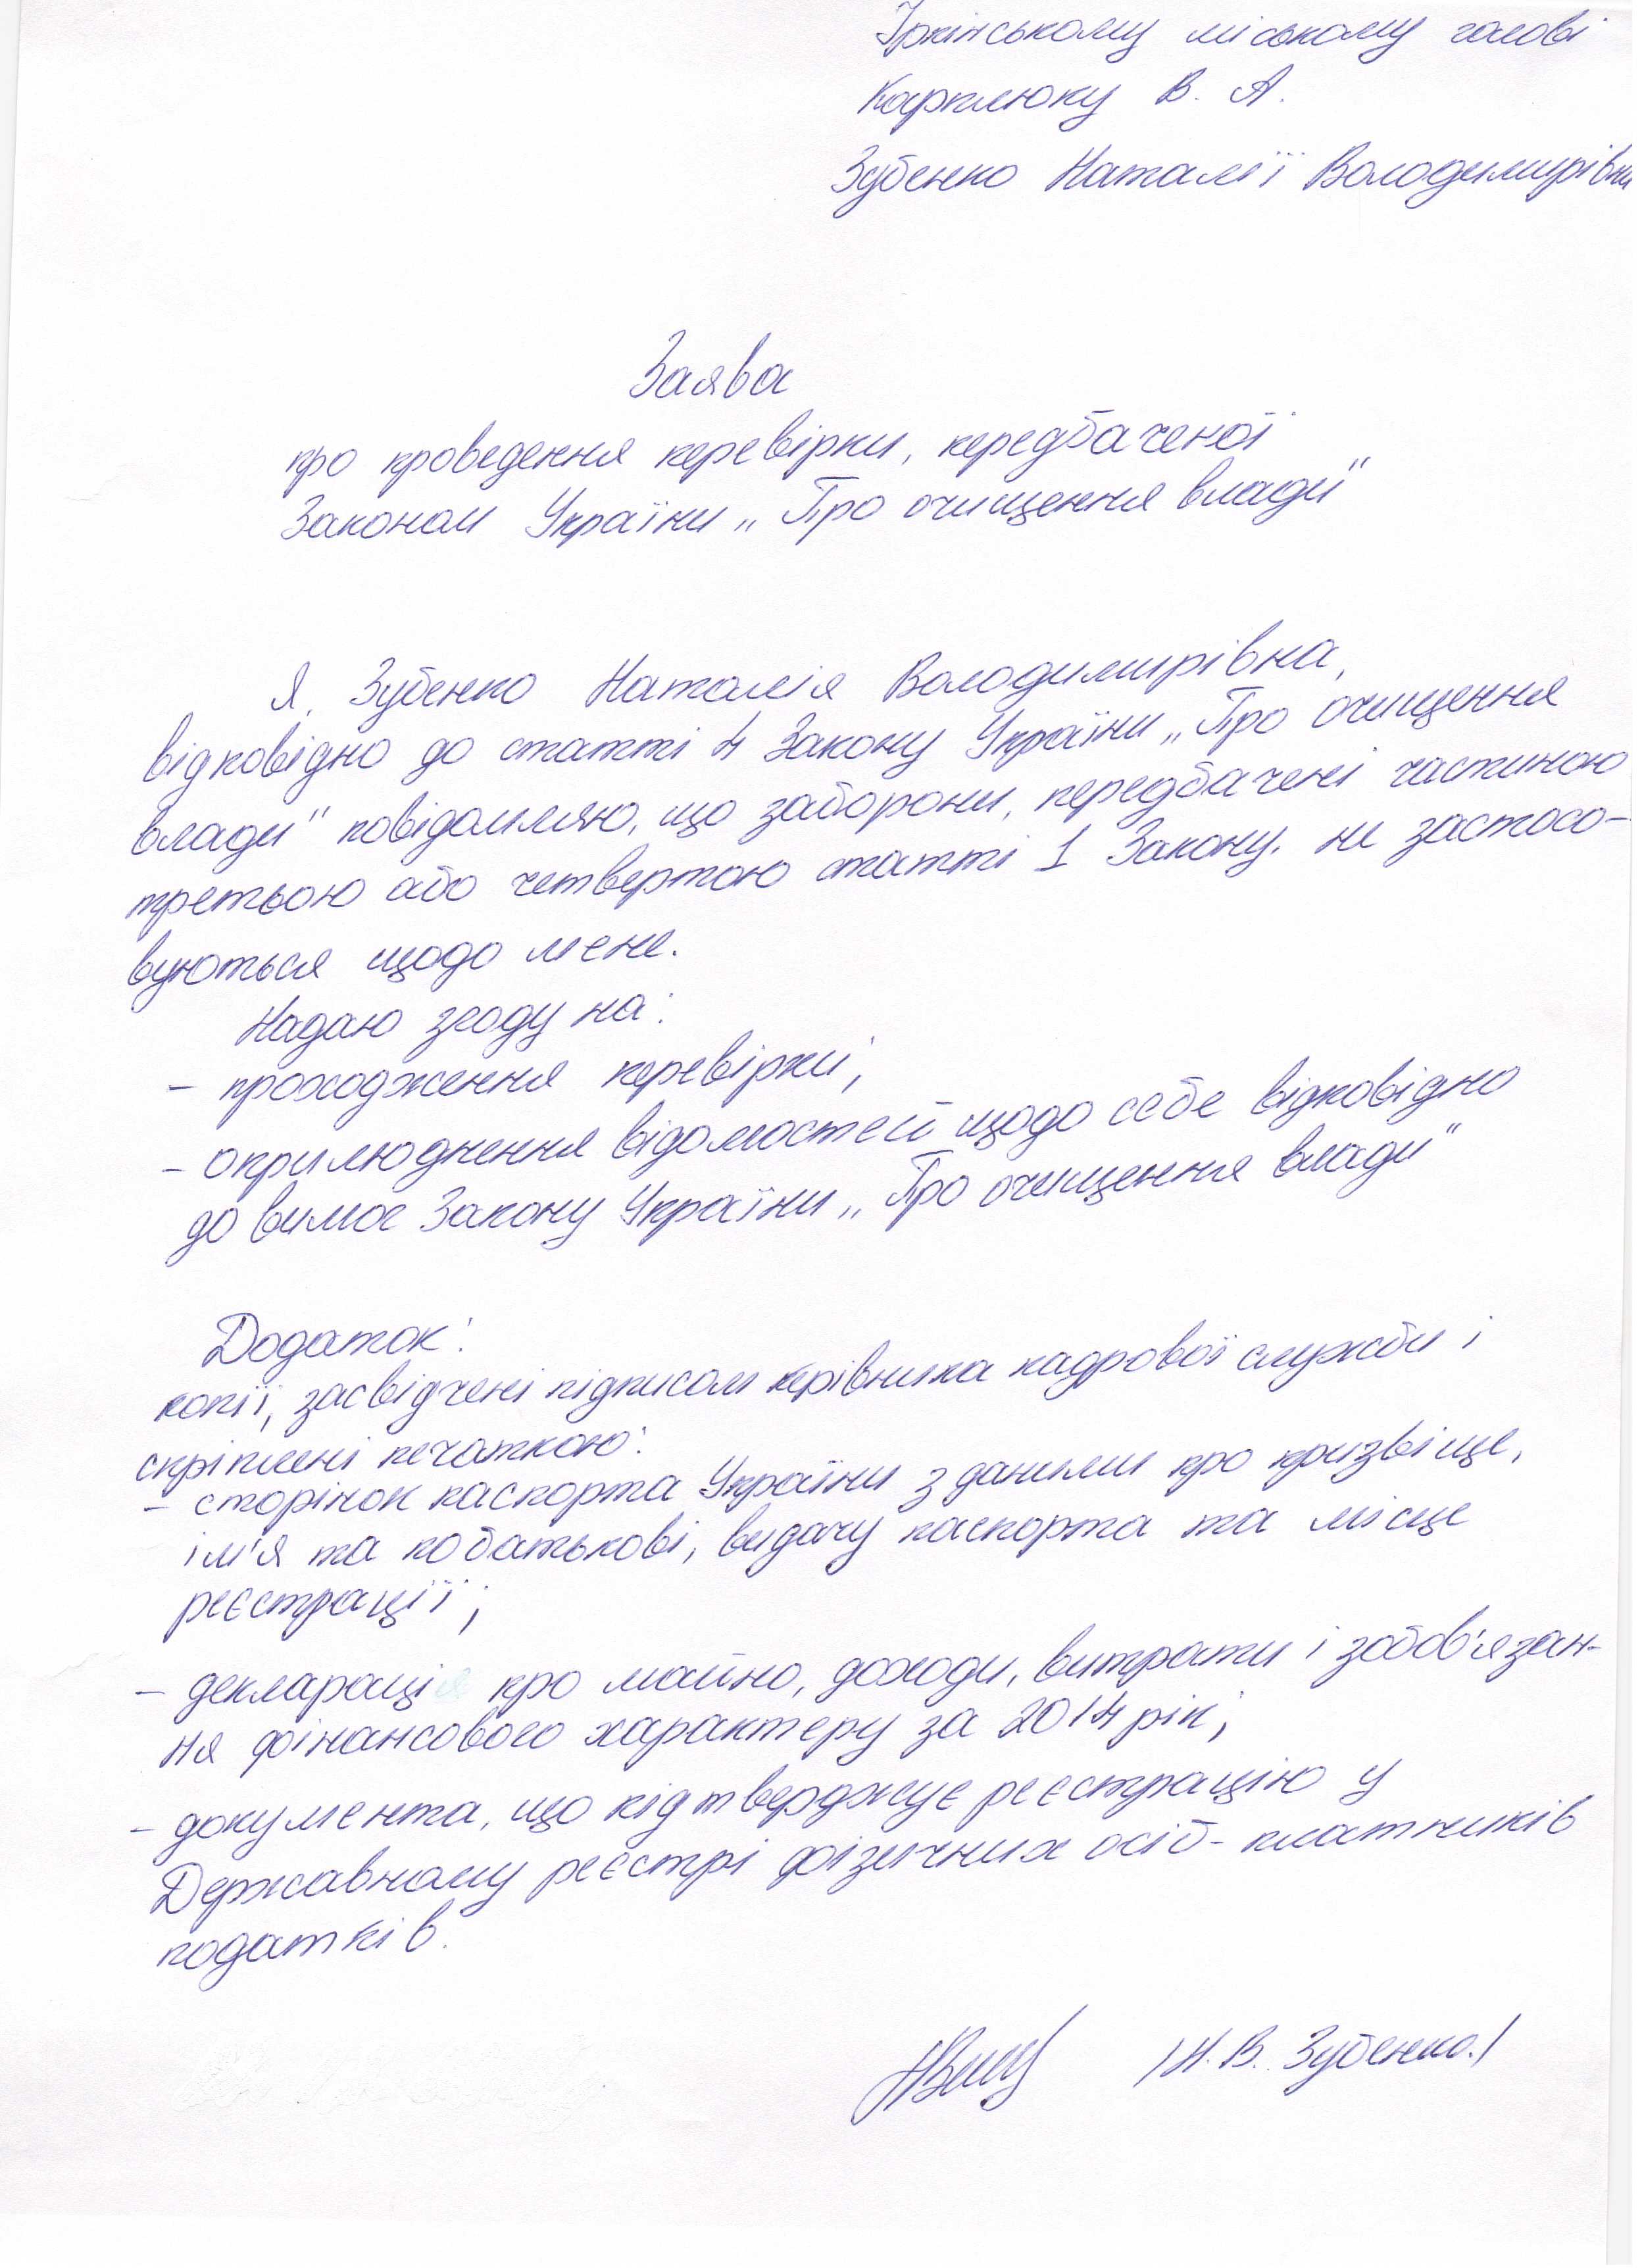 Ірпінському міському голові
Карплюку В. А.
Зубенко Наталії Володимирівни
Заява
про проведення перевірки, передбаченої
Законом України „Про очищення влади"
Я, Зубенко Наталія Володимирівна,
відповідно до статті 4 Закону України „Про очищення
влади" повідомляю, що заборони, передбачені частиною
третьою або четвертою статті 1 Закону, не застосо-
вуються щодо мене.
Надаю згоду на:
- проходження перевірки;
- оприлюднення відомостей щодо себе відповідно
до вимог Закону України „Про очищення влади"
Додаток:
копії, засвідчені підписом керівника кадрової служби і
скріплені печаткою:
- сторінок паспорта України з даними про прізвіще,
ім'я та по батькові, видачу паспорта та місце
реєстрації;
- декларація про майно, доходи, витрати і зобов'язан-
ня фінансового характеру за 2014 рік;
- документа, що підтверджує реєстрацію у
Державному реєстрі фізичних осіб-платників
податків.
/Н. В. Зубенко./